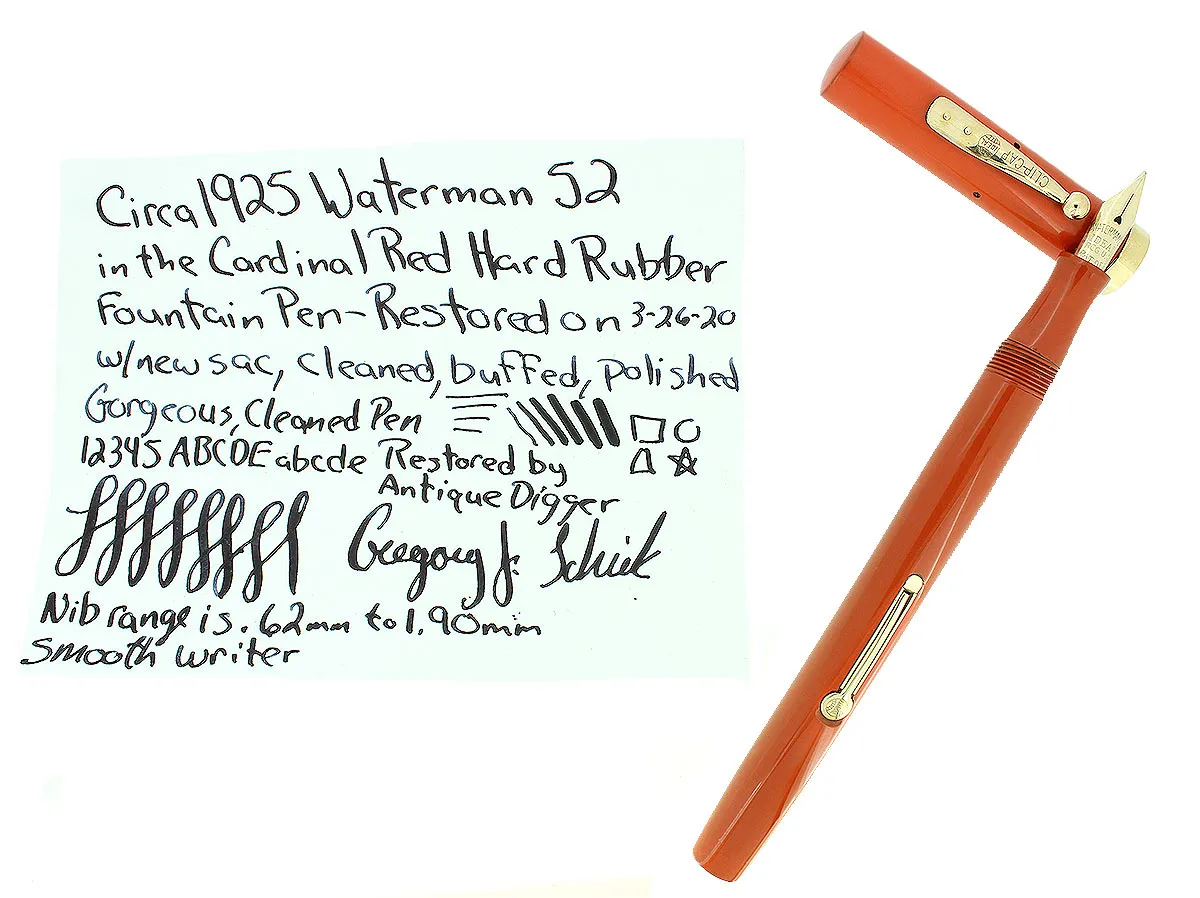 Circa 1925 Waterman 52
in the Cardinal Red Hard Rubber
Fountain Pen - Restored on 3-26-20
w/new sac, cleaned, buffed, polished
Gorgeous, Cleaned Pen
12345 ABCDE abcde Restored by
Antique Digger
Gregory J.
Nib range is .62mm to 1.90mm
Smooth writer
CLIP-CAP
WATERMAN
IDEAL